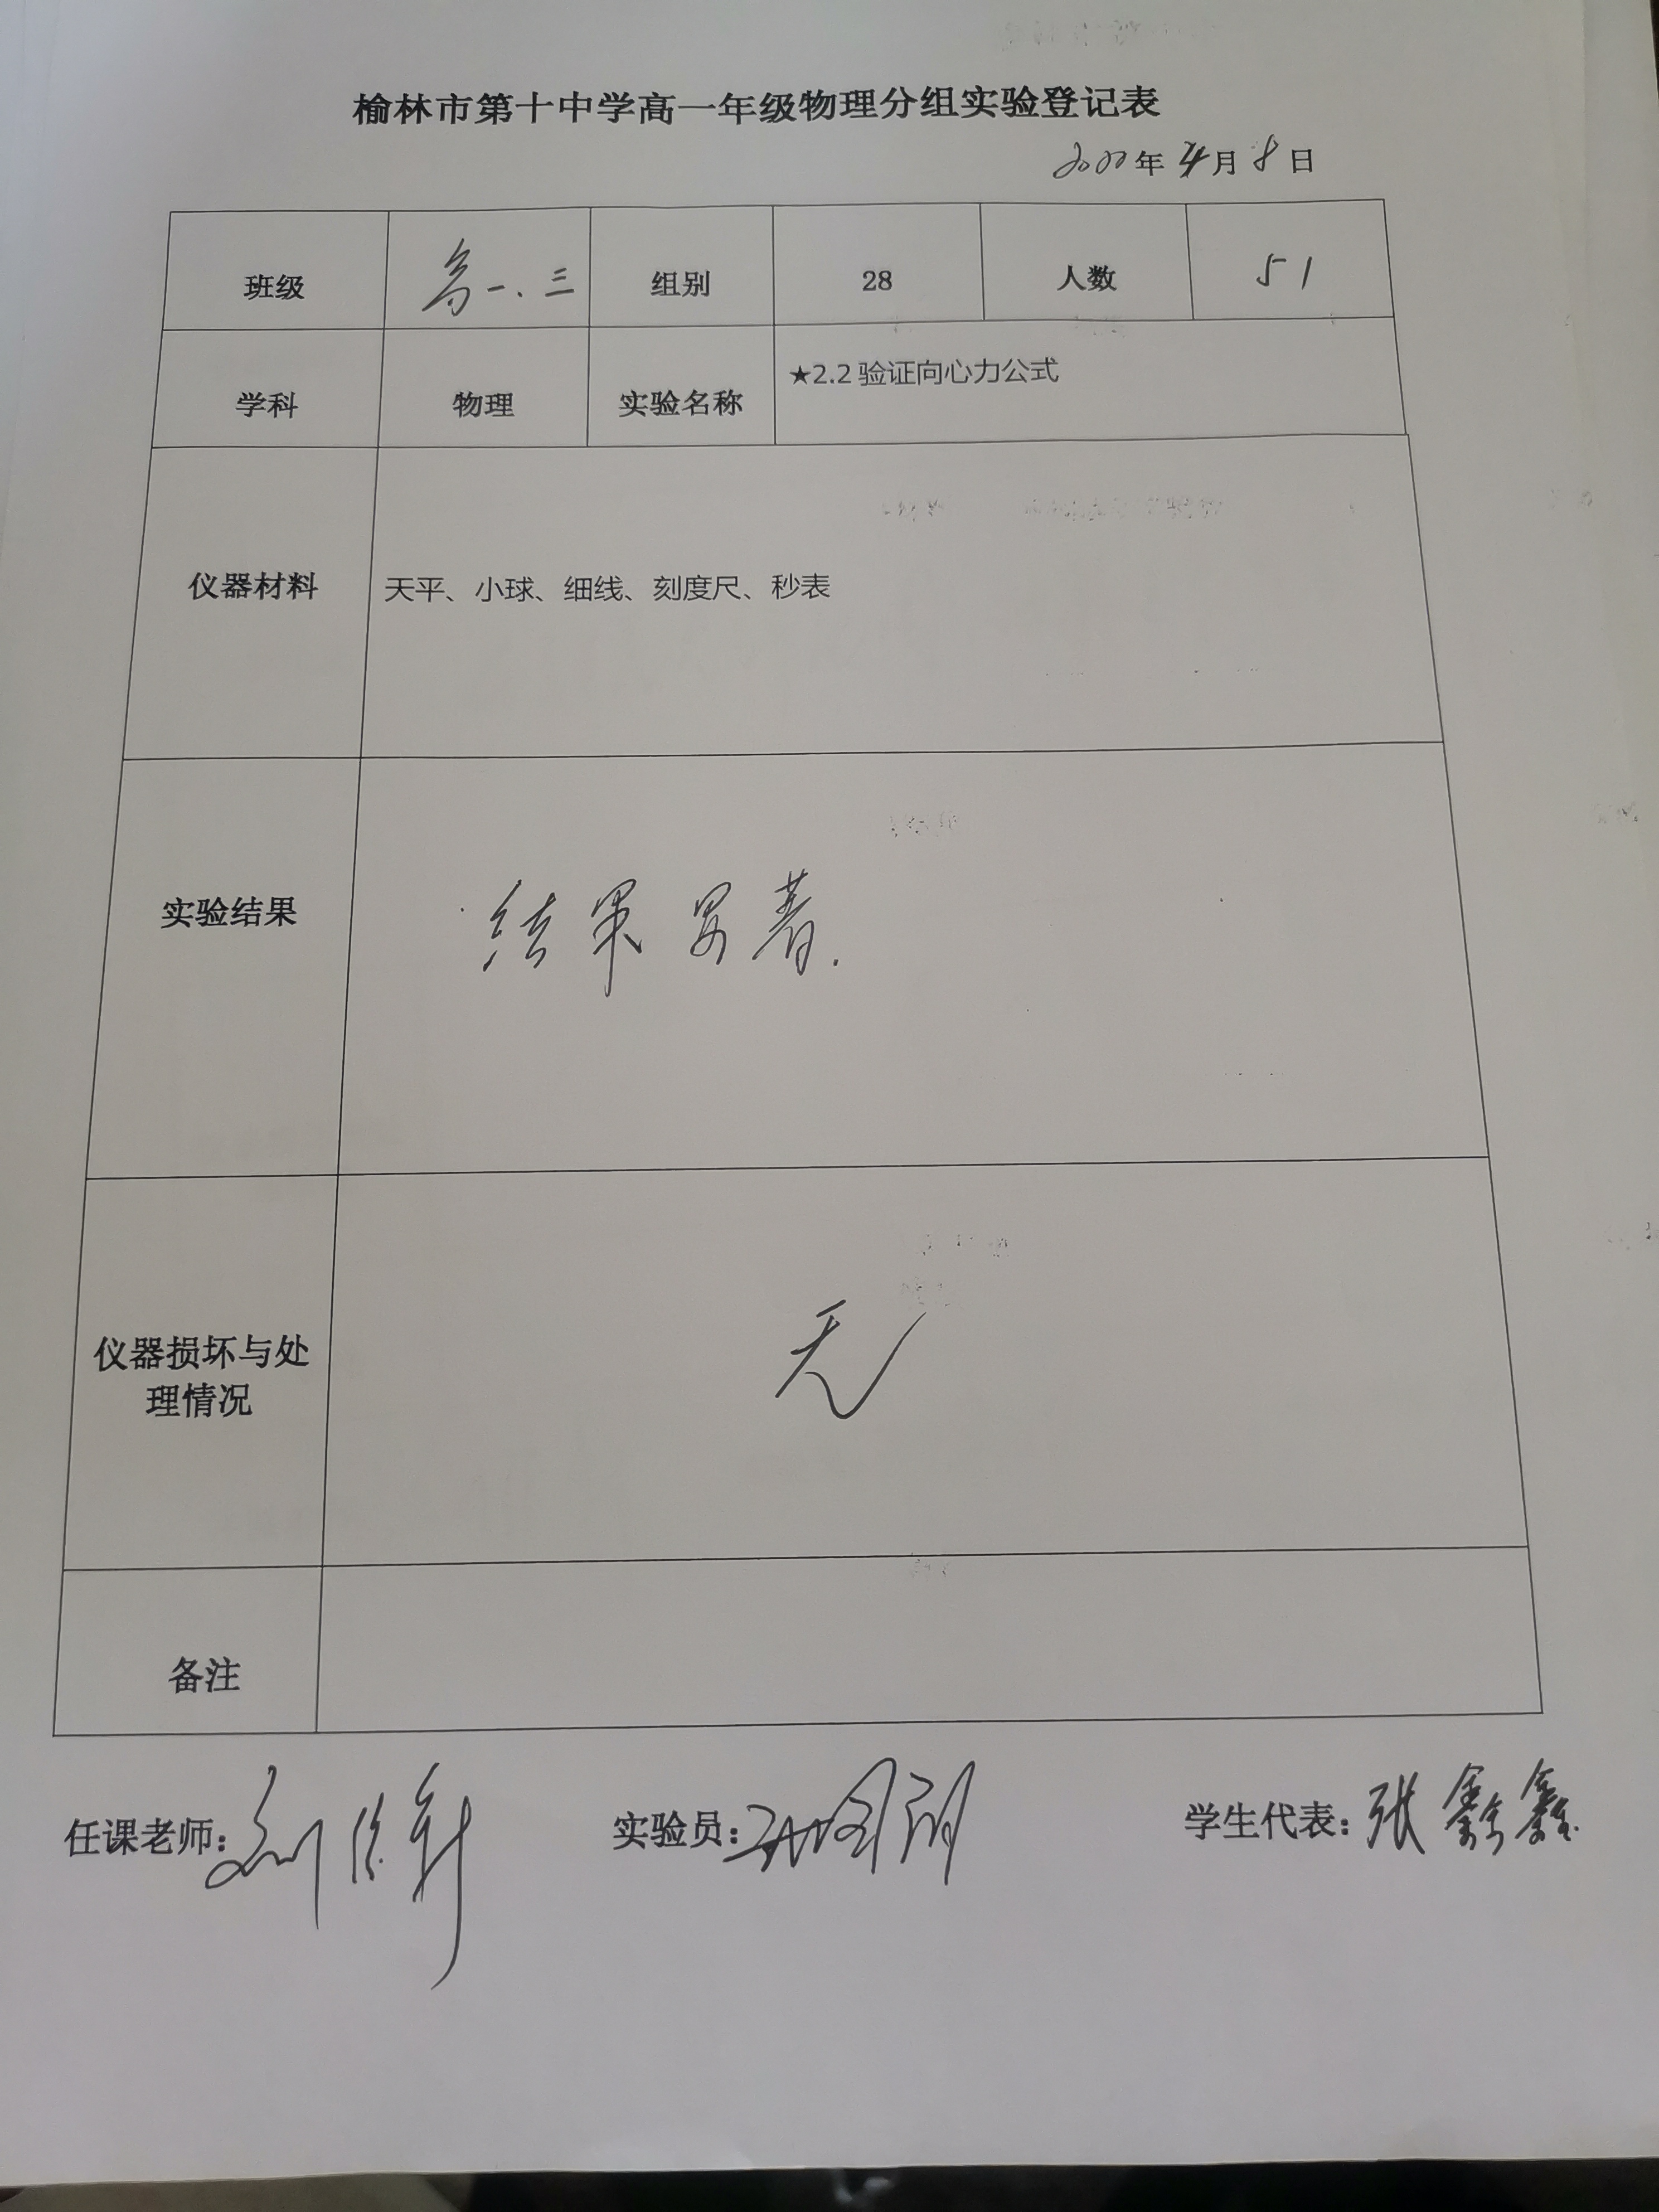 榆林市第十中学高一年级物理分组实验登记表
年4月8日
班级 高一.三 组别 28 人数 51
学科 物理 实验名称 ★2.2 验证向心力公式
仪器材料 天平、小球、细线、刻度尺、秒表
实验结果 结果显著.
仪器损坏与处
理情况 无
备注
任课老师: 实验员: 学生代表: 张鑫鑫